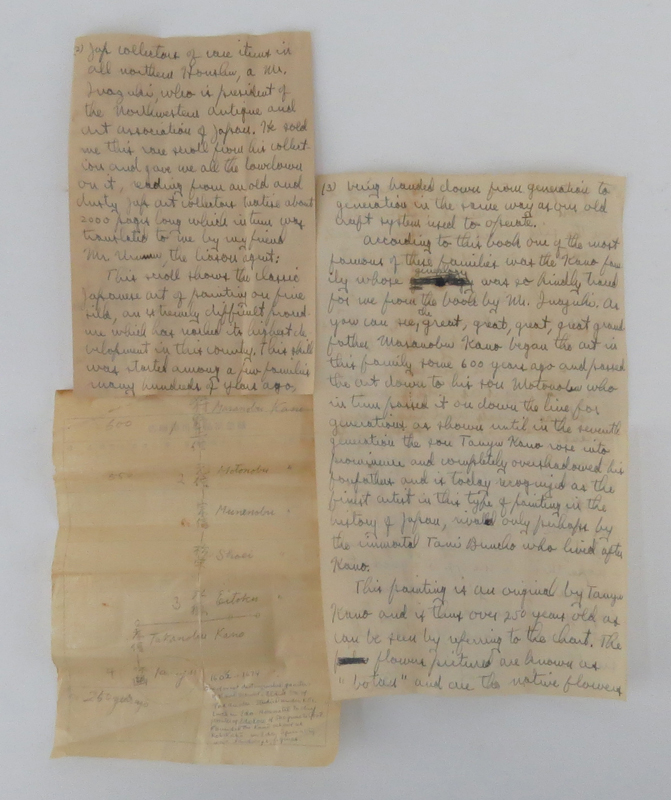 2) Jap collectors of rare items in
all northern Honshu, a Mr.
Inazuki, who is president of
the Northwestern antique and
art association of Japan. He sold
me this rare scroll from his collect-
ion and gave me all the lowdown
on it, reading from an old and
dusty Jap art collectors notice about
2000 pages long which in turn was
translated to me by my friend
Mr. the liason agent:
This scroll shows the classic
Japanese art of painting on fine
silk, an extremely difficult proced-
ure which has reached its highest de-
velopment in this country. This skill
was started among a few families
many hundreds of years ago,
(3) being handed down from generation to
generation in the same way as our old
craft system used to operate.
According to this book one of the most
famous of these families was the Kano fam
ily whose genealogy was so kindly traced
for me from the book by Mr. Inazuki. As
you can see, the great, great, great, great grand
father Masanobu Kano began the art in
this family some 600 years ago and passed
the art down to his son Motonobu who
in turn passed it on down the line for
generations as shown until in the seventh
generation the son Tanyu Kano rose into
prominence and completely overshadowed his
forefathers and is today recognized as the
finest artist in this type of painting in the
history of Japan, rivaled only perhaps by
the immortal Tani Buncho who lived after
Kano.
This painting is an original by Tanyu
Kano and is thus over 250 years old as
can be seen by referring to the chart. The
flowers pictured are known as
"botan" and are the native flowers
600 Masanobu Kano
2 Motonobu "
Munenobu "
Shoei "
3 Eitoku "
Takanobu Kano
4
262 years ago
1602-1674